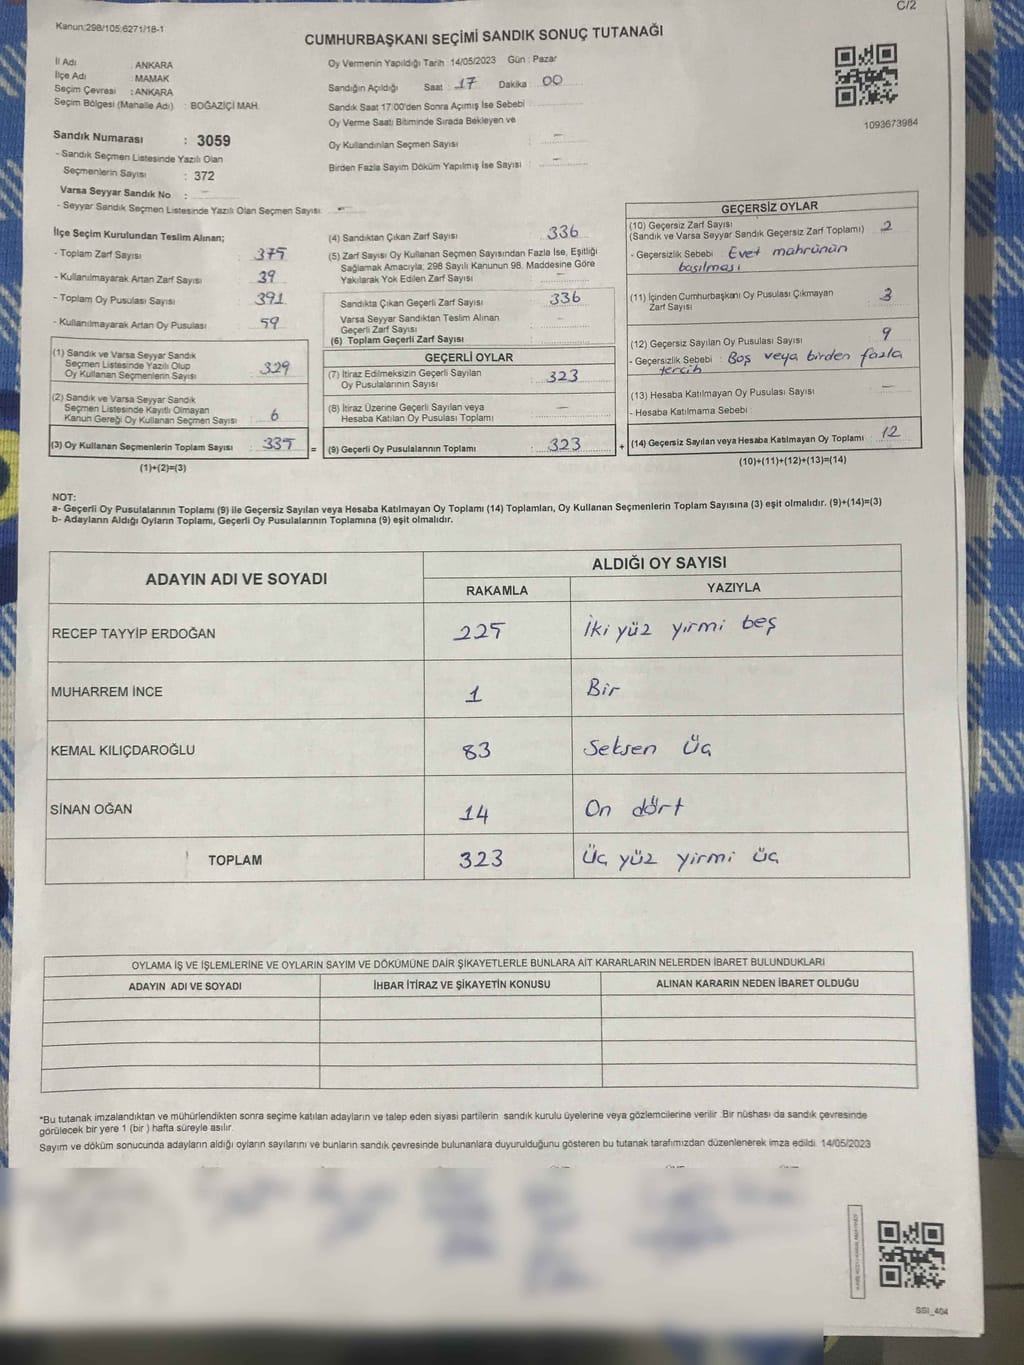 C/2
Kanun:298/105;6271/18-1
CUMHURBAŞKANI SEÇİMİ SANDIK SONUÇ TUTANAĞI
İl Adı : ANKARA
İlçe Adı : MAMAK
Seçim Çevresi : ANKARA
Seçim Bölgesi (Mahalle Adı) : BOĞAZİÇİ MAH.
Sandık Numarası : 3059
- Sandık Seçmen Listesinde Yazılı Olan
Seçmenlerin Sayısı : 372
Varsa Seyyar Sandık No : —
- Seyyar Sandık Seçmen Listesinde Yazılı Olan Seçmen Sayısı : —
Oy Vermenin Yapıldığı Tarih : 14/05/2023 Gün : Pazar
Sandığın Açıldığı Saat : 17 Dakika : 00
Sandık Saat 17:00'den Sonra Açımış İse Sebebi :
Oy Verme Saati Bitiminde Sırada Bekleyen ve
Oy Kullandırılan Seçmen Sayısı : —
Birden Fazla Sayım Döküm Yapılmış İse Sayısı : —
1093673984
İlçe Seçim Kurulundan Teslim Alınan;
- Toplam Zarf Sayısı : 375
- Kullanılmayarak Artan Zarf Sayısı : 39
- Toplam Oy Pusulası Sayısı : 391
- Kullanılmayarak Artan Oy Pusulası : 59
(1) Sandık ve Varsa Seyyar Sandık
Seçmen Listesinde Yazılı Olup
Oy Kullanan Seçmenlerin Sayısı : 329
(2) Sandık ve Varsa Seyyar Sandık
Seçmen Listesinde Kayıtlı Olmayan
Kanun Gereği Oy Kullanan Seçmen Sayısı : 6
(3) Oy Kullanan Seçmenlerin Toplam Sayısı : 335 =
(1)+(2)=(3)
(4) Sandıktan Çıkan Zarf Sayısı : 336
(5) Zarf Sayısı Oy Kullanan Seçmen Sayısından Fazla İse, Eşitliği
Sağlamak Amacıyla; 298 Sayılı Kanunun 98. Maddesine Göre
Yakılarak Yok Edilen Zarf Sayısı : —
Sandıkta Çıkan Geçerli Zarf Sayısı : 336
Varsa Seyyar Sandıktan Teslim Alınan
Geçerli Zarf Sayısı : —
(6) Toplam Geçerli Zarf Sayısı :
GEÇERLİ OYLAR
(7) İtiraz Edilmeksizin Geçerli Sayılan
Oy Pusulalarının Sayısı : 323
(8) İtiraz Üzerine Geçerli Sayılan veya
Hesaba Katılan Oy Pusulası Toplamı : —
(9) Geçerli Oy Pusulalarının Toplamı : 323 +
GEÇERSİZ OYLAR
(10) Geçersiz Zarf Sayısı
(Sandık ve Varsa Seyyar Sandık Geçersiz Zarf Toplamı) : 2
- Geçersizlik Sebebi : Evet mahrünün
basılması
(11) İçinden Cumhurbaşkanı Oy Pusulası Çıkmayan
Zarf Sayısı : 3
(12) Geçersiz Sayılan Oy Pusulası Sayısı : 9
- Geçersizlik Sebebi : Boş veya birden fazla
tercih
(13) Hesaba Katılmayan Oy Pusulası Sayısı : —
- Hesaba Katılmama Sebebi :
(14) Geçersiz Sayılan veya Hesaba Katılmayan Oy Toplamı : 12
(10)+(11)+(12)+(13)=(14)
NOT:
a- Geçerli Oy Pusulalarının Toplamı (9) ile Geçersiz Sayılan veya Hesaba Katılmayan Oy Toplamı (14) Toplamları, Oy Kullanan Seçmenlerin Toplam Sayısına (3) eşit olmalıdır. (9)+(14)=(3)
b- Adayların Aldığı Oyların Toplamı, Geçerli Oy Pusulalarının Toplamına (9) eşit olmalıdır.
ADAYIN ADI VE SOYADI
ALDIĞI OY SAYISI
RAKAMLA YAZIYLA
RECEP TAYYİP ERDOĞAN 225 İki yüz yırmi beş
MUHARREM İNCE 1 Bir
KEMAL KILIÇDAROĞLU 83 Seksen Üç
SİNAN OĞAN 14 On dört
TOPLAM 323 Üç yüz yirmi üç
OYLAMA İŞ VE İŞLEMLERİNE VE OYLARIN SAYIM VE DÖKÜMÜNE DAİR ŞİKAYETLERLE BUNLARA AİT KARARLARIN NELERDEN İBARET BULUNDUKLARI
ADAYIN ADI VE SOYADI İHBAR İTİRAZ VE ŞİKAYETİN KONUSU ALINAN KARARIN NEDEN İBARET OLDUĞU
*Bu tutanak imzalandıktan ve mühürlendikten sonra seçime katılan adayların ve talep eden siyasi partilerin sandık kurulu üyelerine veya gözlemcilerine verilir. Bir nüshası da sandık çevresinde
görülecek bir yere 1 (bir ) hafta süreyle asılır.
Sayım ve döküm sonucunda adayların aldığı oyların sayılarını ve bunların sandık çevresinde bulunanlara duyurulduğunu gösteren bu tutanak tarafımızdan düzenlenerek imza edildi. 14/05/2023
SSI_404